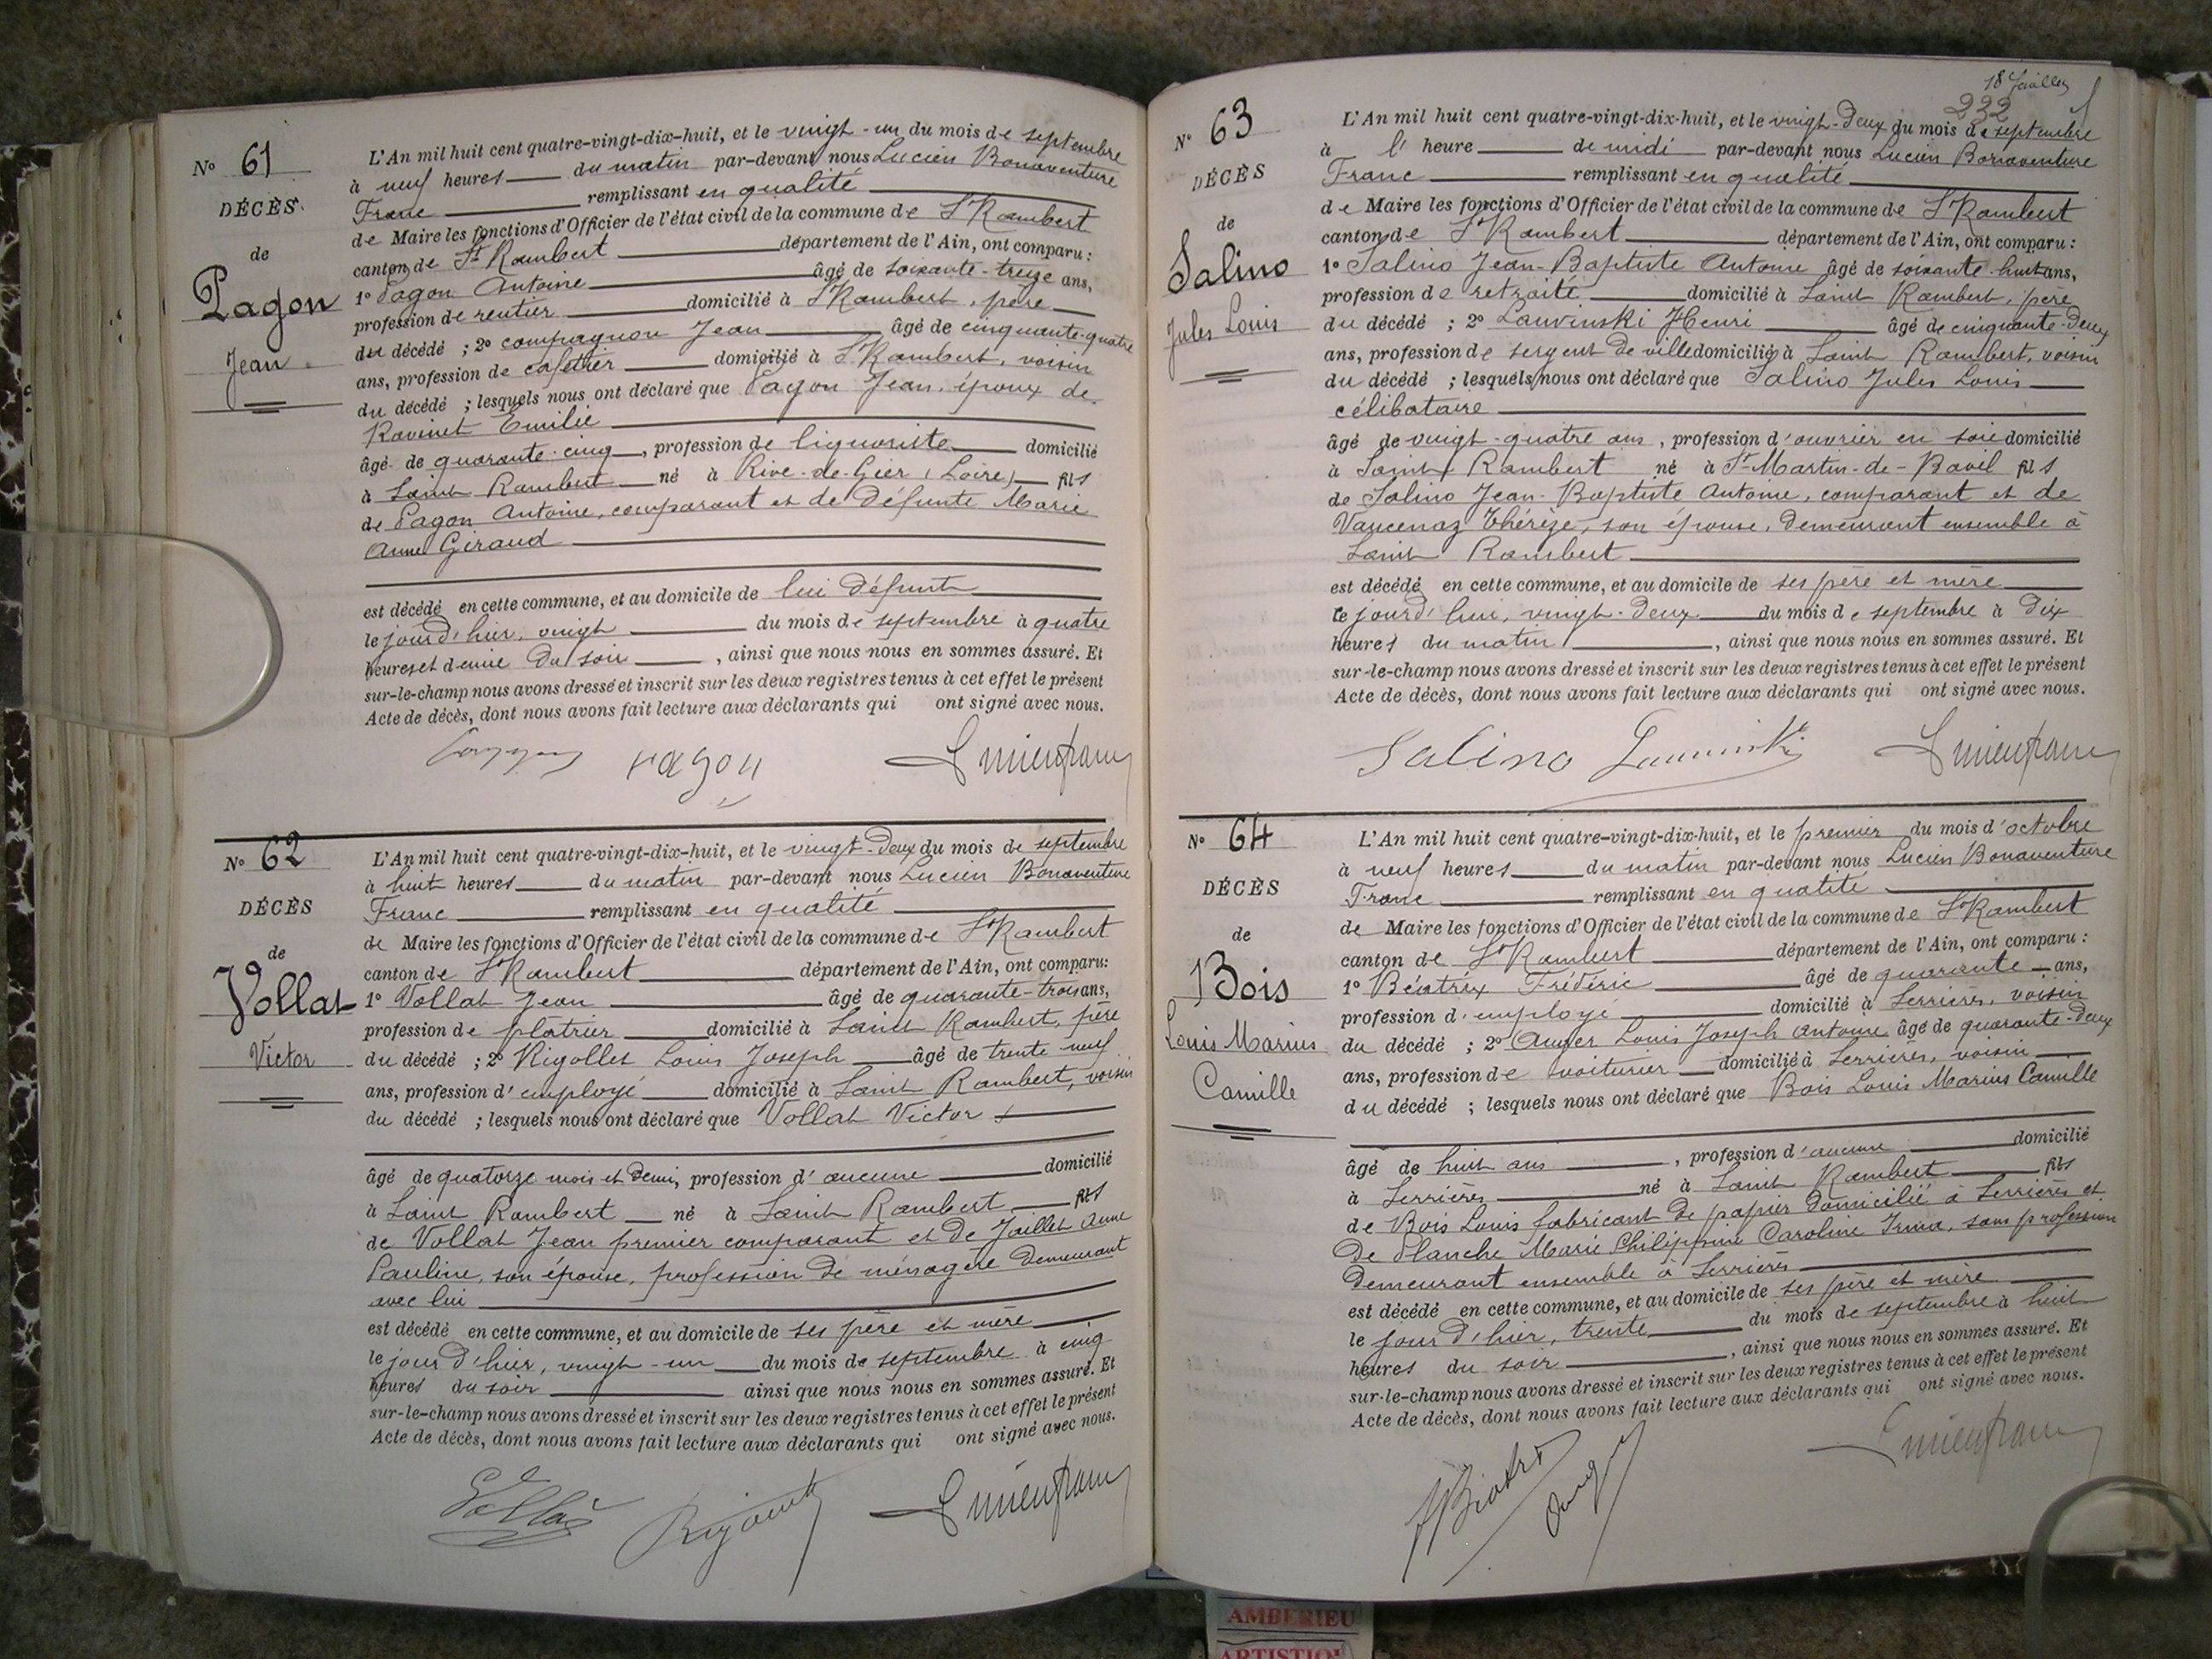 N° 61
DÉCÈS
de
Pagon
Jean
L'An mil huit cent quatre-vingt-dix-huit, et le vingt-un du mois de septembre
à neuf heures du matin par-devant nous Lucien Bonaventure
Franc remplissant en qualité
de Maire les fonctions d'Officier de l'état civil de la commune de St Rambert
canton de St Rambert département de l'Ain, ont comparu :
1° Pagon Antoine âgé de soixante-treize ans,
profession de rentier domicilié à St Rambert, père
du décédé ; 2° compagnon Jean âgé de cinquante-quatre
ans, profession de cafetier domicilié à St Rambert, voisin
du décédé ; lesquels nous ont déclaré que Pagon Jean, époux de
Ravinet Emilie
âgé de quarante-cinq, profession de liquoriste domicilié
à Saint Rambert né à Rive-de-Gier (Loire) fils
de Pagon Antoine, comparant et de défunte Marie
Anne Giraud
est décédé en cette commune, et au domicile de lui défunt
le jour d'hier, vingt du mois de septembre à quatre
heures et demie du soir, ainsi que nous nous en sommes assuré. Et
sur-le-champ nous avons dressé et inscrit sur les deux registres tenus à cet effet le présent
Acte de décès, dont nous avons fait lecture aux déclarants qui ont signé avec nous.
Pagon
N° 62
DÉCÈS
de
Vollat
Victor
L'An mil huit cent quatre-vingt-dix-huit, et le vingt-deux du mois de septembre
à huit heures du matin par-devant nous Lucien Bonaventure
Franc remplissant en qualité
de Maire les fonctions d'Officier de l'état civil de la commune de St Rambert
canton de St Rambert département de l'Ain, ont comparu :
1° Vollat Jean âgé de quarante-trois ans,
profession de plâtrier domicilié à Saint Rambert, père
du décédé ; 2° Rigollet Louis Joseph âgé de trente neuf
ans, profession d'employé domicilié à Saint Rambert, voisin
du décédé ; lesquels nous ont déclaré que Vollat Victor
âgé de quatorze mois et demi, profession d'aucune domicilié
à Saint Rambert né à Saint Rambert fils
de Vollat Jean premier comparant et de Jaillet Anne
Pauline, son épouse, profession de ménagère demeurant
avec lui
est décédé en cette commune, et au domicile de ses père et mère
le jour d'hier, vingt-un du mois de septembre à cinq
heures du soir ainsi que nous nous en sommes assuré. Et
sur-le-champ nous avons dressé et inscrit sur les deux registres tenus à cet effet le présent
Acte de décès, dont nous avons fait lecture aux déclarants qui ont signé avec nous.
Vollat
222
N° 63
DÉCÈS
de
Salino
Jules Louis
L'An mil huit cent quatre-vingt-dix-huit, et le vingt-deux du mois de septembre
à l' heure de midi par-devant nous Lucien Bonaventure
Franc remplissant en qualité
de Maire les fonctions d'Officier de l'état civil de la commune de St Rambert
canton de St Rambert département de l'Ain, ont comparu :
1° Salino Jean-Baptiste Antoine âgé de soixante-huit ans,
profession de retraité domicilié à Saint Rambert, père
du décédé ; 2° Lauvinski Henri âgé de cinquante-deux
ans, profession de sergent de ville domicilié à Saint Rambert, voisin
du décédé ; lesquels nous ont déclaré que Salino Jules Louis
célibataire
âgé de vingt-quatre ans, profession d'ouvrier en soie domicilié
à Saint Rambert né à St-Martin-de-Bavil fils
de Salino Jean-Baptiste Antoine, comparant et de
Vaucenaz Thérèze, son épouse, demeurant ensemble à
Saint Rambert
est décédé en cette commune, et au domicile de ses père et mère
le jour d'hui, vingt-deux du mois de septembre à dix
heures du matin, ainsi que nous nous en sommes assuré. Et
sur-le-champ nous avons dressé et inscrit sur les deux registres tenus à cet effet le présent
Acte de décès, dont nous avons fait lecture aux déclarants qui ont signé avec nous.
Salino
N° 64
DÉCÈS
de
Bois
Louis Marius
Camille
L'An mil huit cent quatre-vingt-dix-huit, et le premier du mois d'octobre
à neuf heures du matin par-devant nous Lucien Bonaventure
Franc remplissant en qualité
de Maire les fonctions d'Officier de l'état civil de la commune de St Rambert
canton de St Rambert département de l'Ain, ont comparu :
1° Béatrix Frédéric âgé de quarante ans,
profession d'employé domicilié à Serrières, voisin
du décédé ; 2° Auger Louis Joseph Antoine âgé de quarante-deux
ans, profession de voiturier domicilié à Serrières, voisin
du décédé ; lesquels nous ont déclaré que Bois Louis Marius Camille
âgé de huit ans, profession d'aucune domicilié
à Serrières né à Saint Rambert fils
de Bois Louis fabricant de papier domicilié à Serrières et
de Planche Marie Philippine Caroline Irma, sans profession
demeurant ensemble à Serrières
est décédé en cette commune, et au domicile de ses père et mère
le jour d'hier, trente du mois de septembre à huit
heures du soir, ainsi que nous nous en sommes assuré. Et
sur-le-champ nous avons dressé et inscrit sur les deux registres tenus à cet effet le présent
Acte de décès, dont nous avons fait lecture aux déclarants qui ont signé avec nous.
AMBERIEU